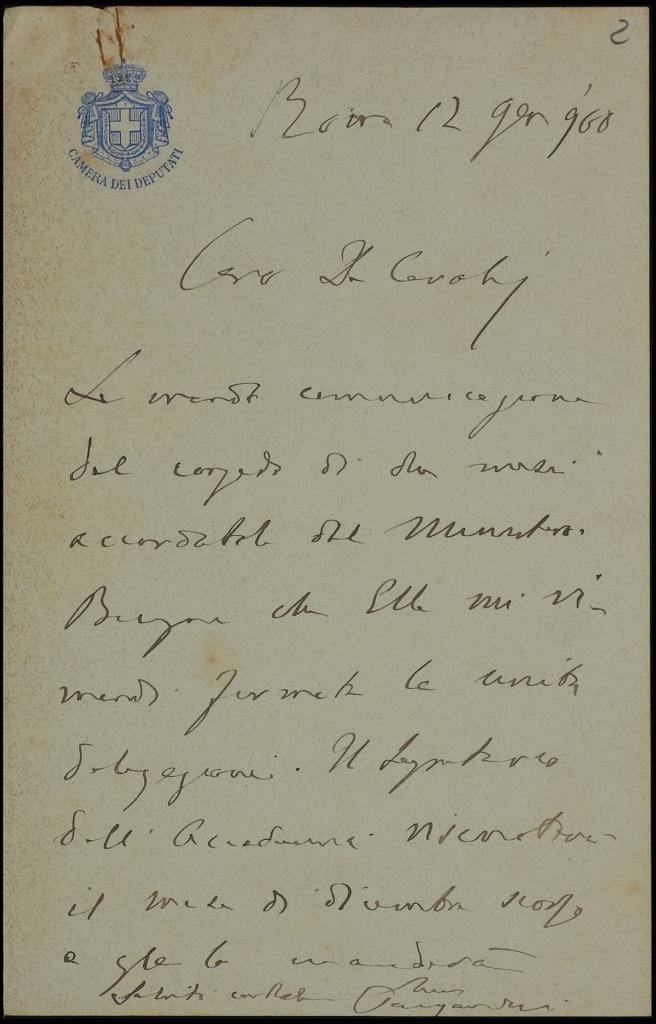 2
CAMERA DEI DEPUTATI
Roma 12 gen 900
Caro De Carolis
Le mando comunicazione
del congedo di due mesi
accordatole dal Ministero.
Bisogna che Ella mi ri-
mandi firmata la unita
delegazione. Il Segretario
dell'Accademia riscuoterà
il mese di dicembre scorso
e glielo manderà
Saluti cordiali